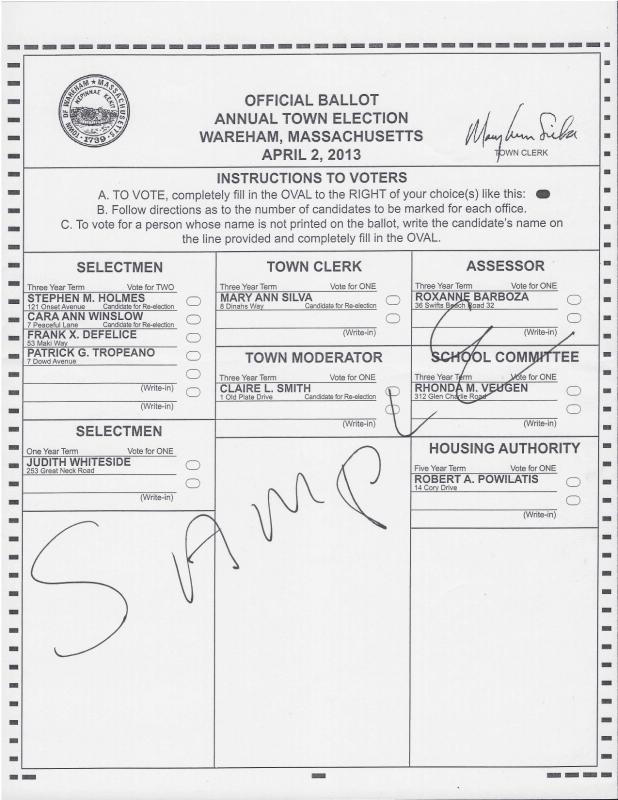 TOWN OF WAREHAM ★ MASSACHUSETTS
NEPINNAE KEKIT
1739
OFFICIAL BALLOT
ANNUAL TOWN ELECTION
WAREHAM, MASSACHUSETTS
APRIL 2, 2013
Mary Ann Silva
TOWN CLERK
INSTRUCTIONS TO VOTERS
A. TO VOTE, completely fill in the OVAL to the RIGHT of your choice(s) like this:
B. Follow directions as to the number of candidates to be marked for each office.
C. To vote for a person whose name is not printed on the ballot, write the candidate's name on
the line provided and completely fill in the OVAL.
SELECTMEN
Three Year Term Vote for TWO
STEPHEN M. HOLMES
121 Onset Avenue Candidate for Re-election
CARA ANN WINSLOW
7 Peaceful Lane Candidate for Re-election
FRANK X. DEFELICE
53 Maki Way
PATRICK G. TROPEANO
7 Dowd Avenue
(Write-in)
(Write-in)
SELECTMEN
One Year Term Vote for ONE
JUDITH WHITESIDE
253 Great Neck Road
(Write-in)
TOWN CLERK
Three Year Term Vote for ONE
MARY ANN SILVA
8 Dinahs Way Candidate for Re-election
(Write-in)
TOWN MODERATOR
Three Year Term Vote for ONE
CLAIRE L. SMITH
1 Old Plate Drive Candidate for Re-election
(Write-in)
ASSESSOR
Three Year Term Vote for ONE
ROXANNE BARBOZA
36 Swifts Beach Road 32
(Write-in)
SCHOOL COMMITTEE
Three Year Term Vote for ONE
RHONDA M. VEUGEN
312 Glen Charlie Road
(Write-in)
HOUSING AUTHORITY
Five Year Term Vote for ONE
ROBERT A. POWILATIS
14 Cory Drive
(Write-in)
SAMPLE